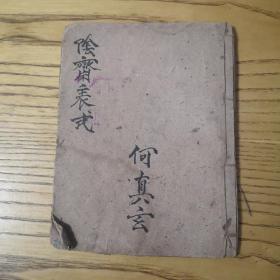 陰齋表式
何真玄